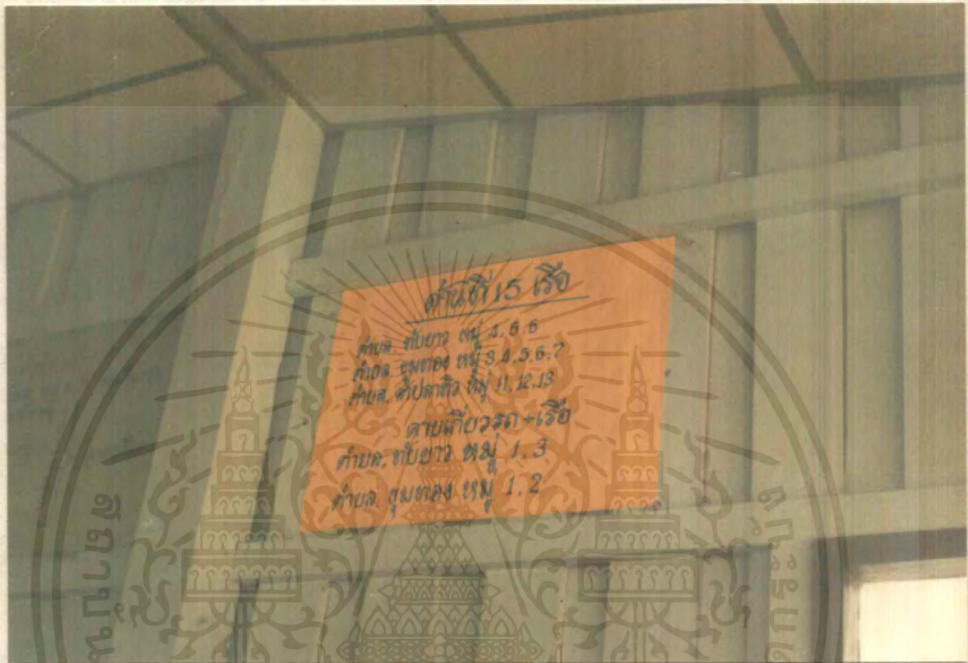 ด้านที่ 15 เรือ
ตำบล. ทับยาว หมู่ 4,5,6
ตำบล. ขุมทอง หมู่ 3,4,5,6,7
ตำบล. ลำปลาทิว หมู่ 11,12,13
คาบเกี่ยวรถ+เรือ
ตำบล. ทับยาว หมู่ 1,3
ตำบล. ขุมทอง หมู่ 1,2
สถาบัน